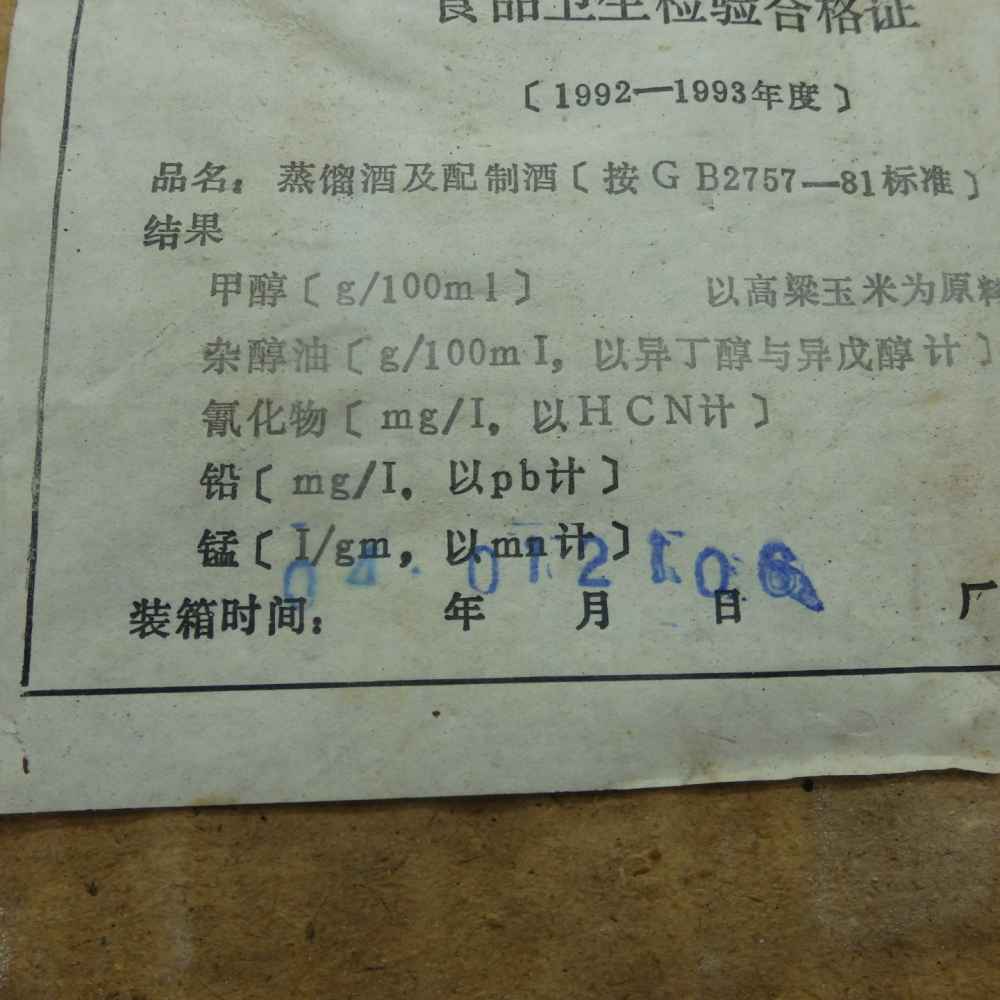 食品卫生检验合格证
〔1992—1993年度〕
品名：蒸馏酒及配制酒〔按GB2757—81标准〕
结果
甲醇〔g/100ml〕 以高粱玉米为原料
杂醇油〔g/100mI，以异丁醇与异戊醇计〕
氰化物〔mg/I，以HCN计〕
铅〔mg/I，以pb计〕
锰〔I/gm，以mn计〕
04.012106
装箱时间： 年 月 日 厂